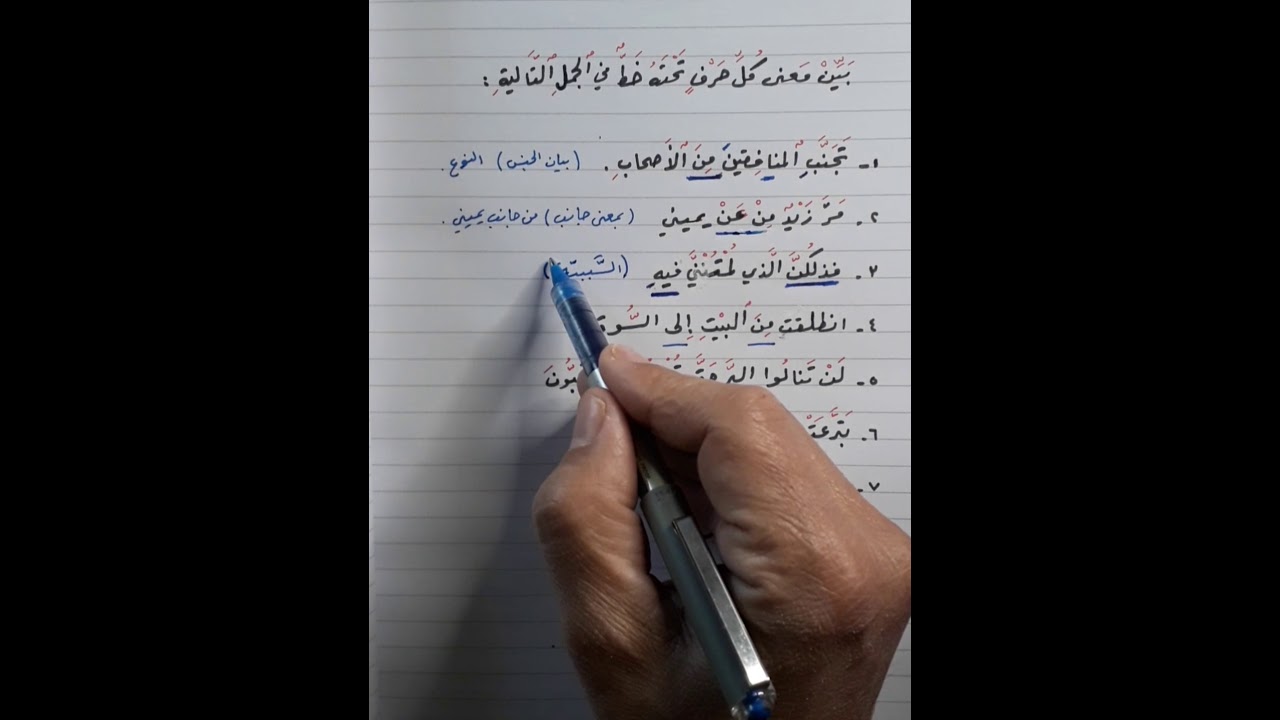 بَيِّنْ مَعنى كُلِّ حَرْفٍ تَحْتَهُ خَطٌّ في ٱلجملِ ٱلتَّاليةِ :
١- تَجَنَّبِ ٱلمنافِقينَ مِنَ ٱلأَصحابِ . (بيان الجنس) النوع .
٢- مَرَّ زَيْدٌ مِنْ عَنْ يميني (بمعنى جانب) من جانب يميني .
٣- فذلكُنَّ الَّذي لُمْتُنَّني فيهِ (السَّببيّة)
٤- انطلقت مِنَ ٱلبيْتِ إِلى السُّوق
٥- لَنْ تَنالُوا البِرَّ حَتَّى
٦- تَبَرَّعَتْ
٧-